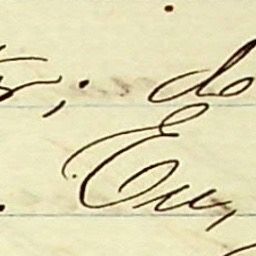 ; do
Eu,